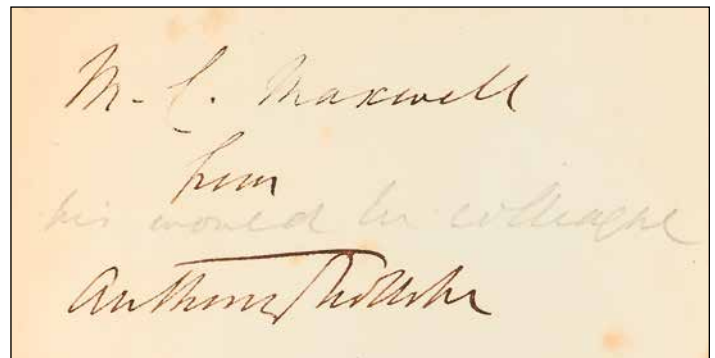 M. C. Maxwell
from
his would be colleague
Anthony Trollope